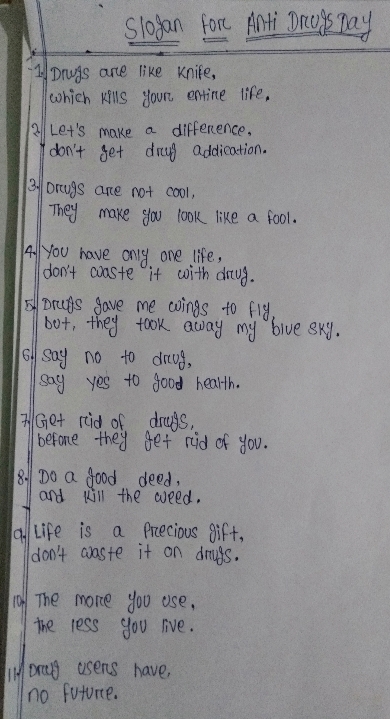 Slogan for Anti Drugs Day
1. Drugs are like Knife,
which kills your entire life.
2. Let's make a difference,
don't get drug addication.
3. Drugs are not cool,
They make you look like a fool.
4. You have only one life,
don't waste it with drug.
5. Drugs gave me wings to fly,
but, they took away my blue sky.
6. Say no to drug,
say yes to good health.
7. Get rid of drugs,
before they get rid of you.
8. Do a good deed,
and kill the weed.
9. Life is a Precious gift,
don't waste it on drugs.
10. The more you use,
the less you live.
11. Drug users have,
no future.